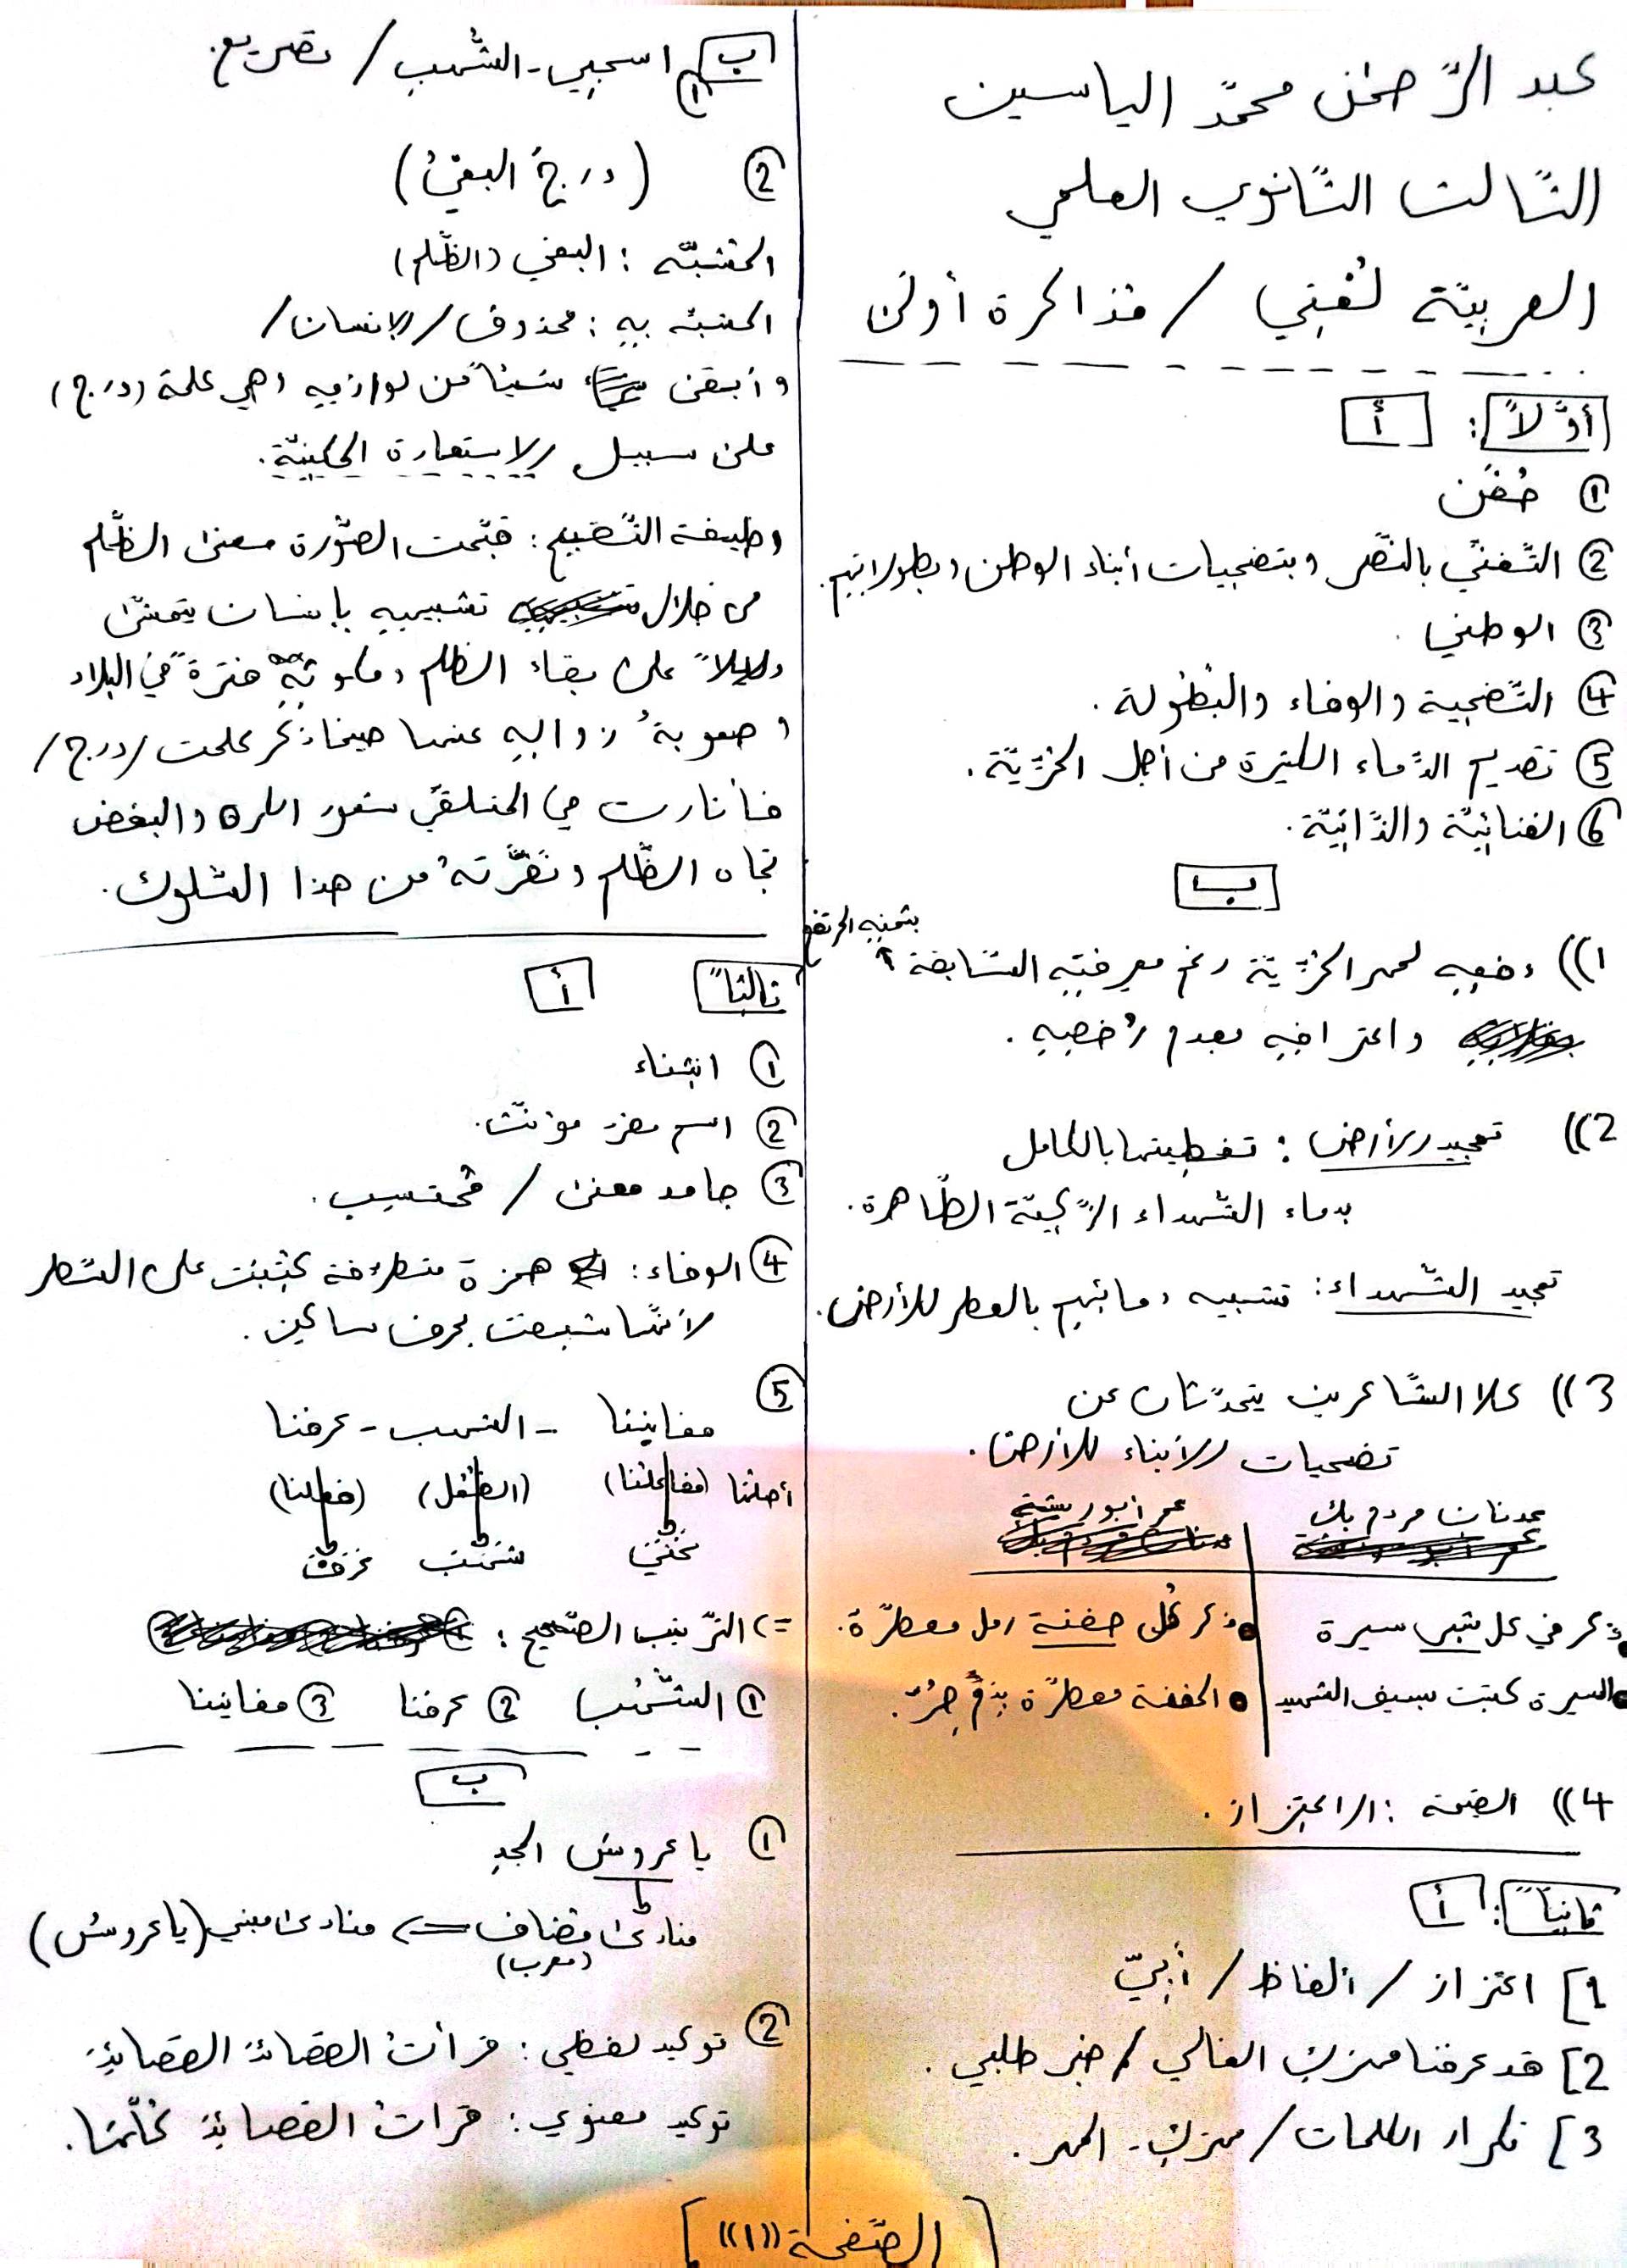 عبد الرَّحمٰن محمَّد الياسين
الثَّالث الثَّانوي العلمي
العربيَّة لُغتي / مذاكرة أولى
أوَّلاً: أ
① 
② التَّغنّي بالنَّصر وبتضحيات أبناء الوطن وبطولاتهم.
③ الوطني.
④ التَّضحية والوفاء والبُطولة.
⑤ تقديم الدِّماء الكثيرة من أجل الحُرِّيَّة.
⑥ الغنائيَّة والذَّاتيَّة.
ب
1)) دفعِهِ لمهر الحُرِّيَّة رغم معرفتِهِ السَّابقة بثمنِهِ المرتفع
واعترافِهِ بعدم رُخصِهِ.
2)) تمجيد الأرض: تغطيتها بالكامل
بدماء الشُّهداء الزَّكيَّة الطَّاهرة.
تمجيد الشُّهداء: تشبيه دمائهم بالعطر للأرض.
3)) كلا الشَّاعرين يتحدَّثان عن
تضحيات الأبناء للأرض.
عدنان مردم بك
عمر أبو ريشة
ذكر في كل شبر سيرة
ذكر كُل حفنة رمل معطَّرة.
السيرة كتبت بسيف الشهيد
الحفنة معطَّرة بدمٍ حُرّ.
4)) القيمة: الاعتزاز.
ثانياً: أ
1] اعتزاز / ألفاظ / أبيّ
2] قد عرفنا مهركِ الغالي / خبر طلبي.
3] تكرار الكلمات / مهركِ - المهر.
ب
① اسحبي - الشُّهبِ / تصريع.
② (درجَ البغيُ)
المشبَّه: البغي (الظُّلم)
المشبَّه به: محذوف / الإنسان /
وأبقى شيئاً من لوازمِهِ وهي كلمة (درج)
على سبيل الاستعارة المكنيَّة.
وظيفة التَّقبيح: قبَّحت الصُّورة معنى الظُّلم
من خلال تشبيهِهِ بإنسان يتمشّى
دليلاً على بقاء الظلم ومكوثِهِ فترةً في البلاد
وصعوبةُ زوالِهِ عنها حينما ذكر كلمة / درج /
فأثارت في المتلقّي شعور الكره والبغض
تجاه الظُّلم ونفَّرتهُ من هذا السُّلوك.
ثالثاً أ
① انتشاء
② اسم مفرد مؤنَّث.
③ جامد معنى / مُحتسِب.
④ الوفاء: همزة متطرِّفة كُتِبَت على السَّطر
لأنَّها سُبِقت بحرف ساكن.
⑤ مغانينا - الشهب - عرفنا
أصلها (مفاعلنا) (الفُعُل) (فعلنا)
غني شَهَب عرف
=> التَّرتيب الصَّحيح:
① الشُّهُب ② عرفنا ③ مغانينا
ب
① يا عروسَ المجدِ
منادى مضاف => منادى مبني (يا عروسُ)
(معرب)
② توكيد لفظي: قرأتُ القصائدَ القصائدَ
توكيد معنوي: قرأتُ القصائدَ كلَّها.
[الصَّفحة ((1))]